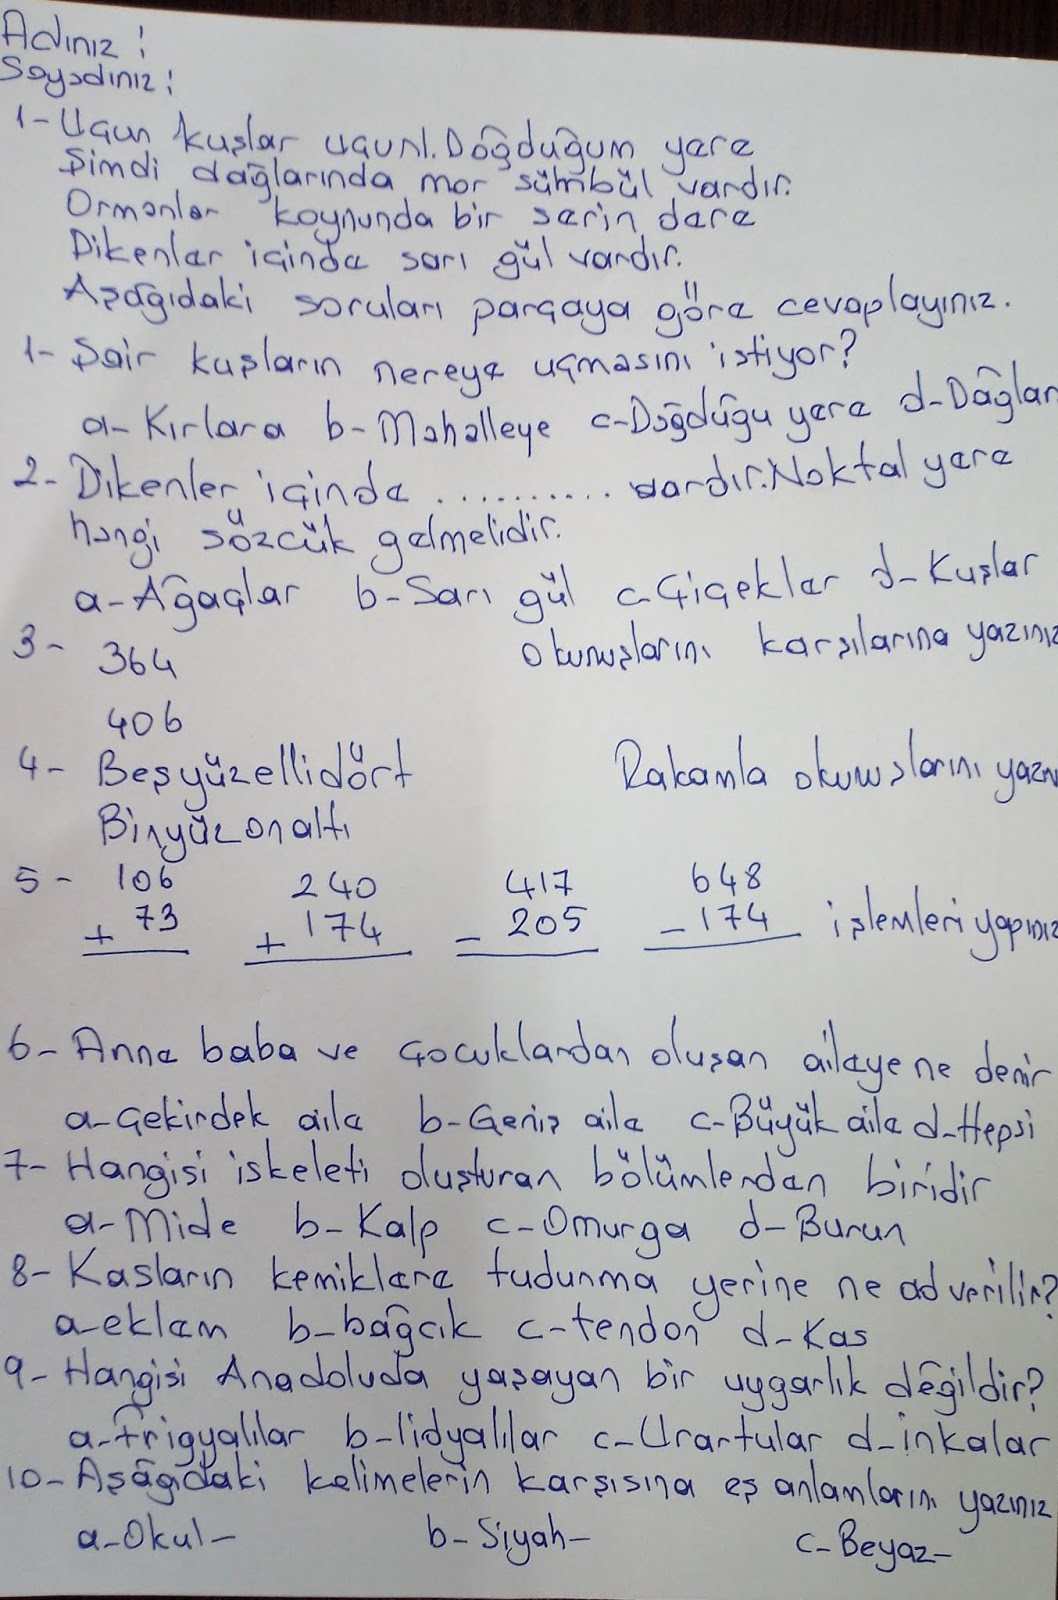 Adınız:
Soyadınız:
1- Uçun kuşlar uçun!. Doğduğum yere
Şimdi dağlarında mor sümbül vardır.
Ormanlar koynunda bir serin dere
Dikenler içinde sarı gül vardır.
Aşağıdaki soruları parçaya göre cevaplayınız.
1- Şair kuşların nereye uçmasını istiyor?
a- Kırlara b- Mahalleye c- Doğduğu yere d- Dağlar
2- Dikenler içinde .......... vardır. Noktal yere
hangi sözcük gelmelidir.
a- Ağaçlar b- Sarı gül c- Çiçekler d- Kuşlar
3- 364 okunuşlarını karşılarına yazınız
406
4- Beşyüzellidört Rakamla okunuşlarını yazın
Binyüzonaltı
5- 106 240 417 648
+ 73 + 174 - 205 - 174 işlemleri yapınız
6- Anne baba ve çocuklardan oluşan aileye ne denir
a- Çekirdek aile b- Geniş aile c- Büyük aile d- Hepsi
7- Hangisi iskeleti oluşturan bölümlerden biridir
a- Mide b- Kalp c- Omurga d- Burun
8- Kasların kemiklere tudunma yerine ne ad verilir?
a- eklem b- bağcık c- tendon d- Kas
9- Hangisi Anadoluda yaşayan bir uygarlık değildir?
a- Frigyalılar b- lidyalılar c- Urartular d- inkalar
10- Aşağıdaki kelimelerin karşısına eş anlamlarını yazınız
a- Okul- b- Siyah- c- Beyaz-